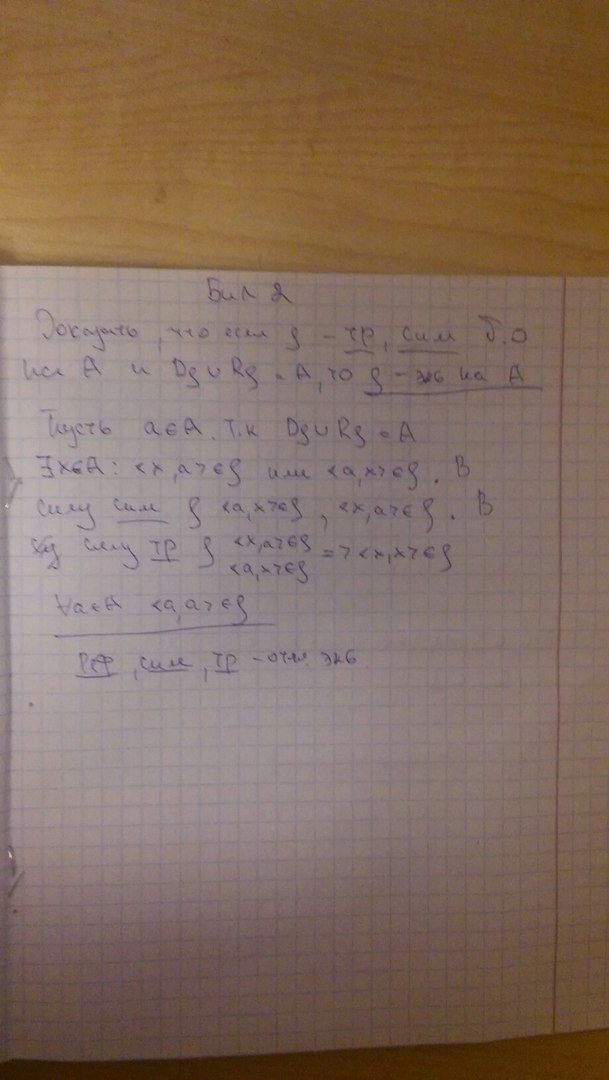 Бил 2
Доказать, что если ρ - тр, сим б.о
на A и Dρ ∪ Rρ = A, то ρ - экв на A
Пусть a∈A. Т.к Dρ ∪ Rρ = A
∃x∈A: <x,a>∈ρ или <a,x>∈ρ. В
силу сим ρ <a,x>∈ρ, <x,a>∈ρ. В
силу тр ρ <x,a>∈ρ
<a,x>∈ρ => <x,x>∈ρ
∀a∈A <a,a>∈ρ
реф, сим, тр - отн. экв.